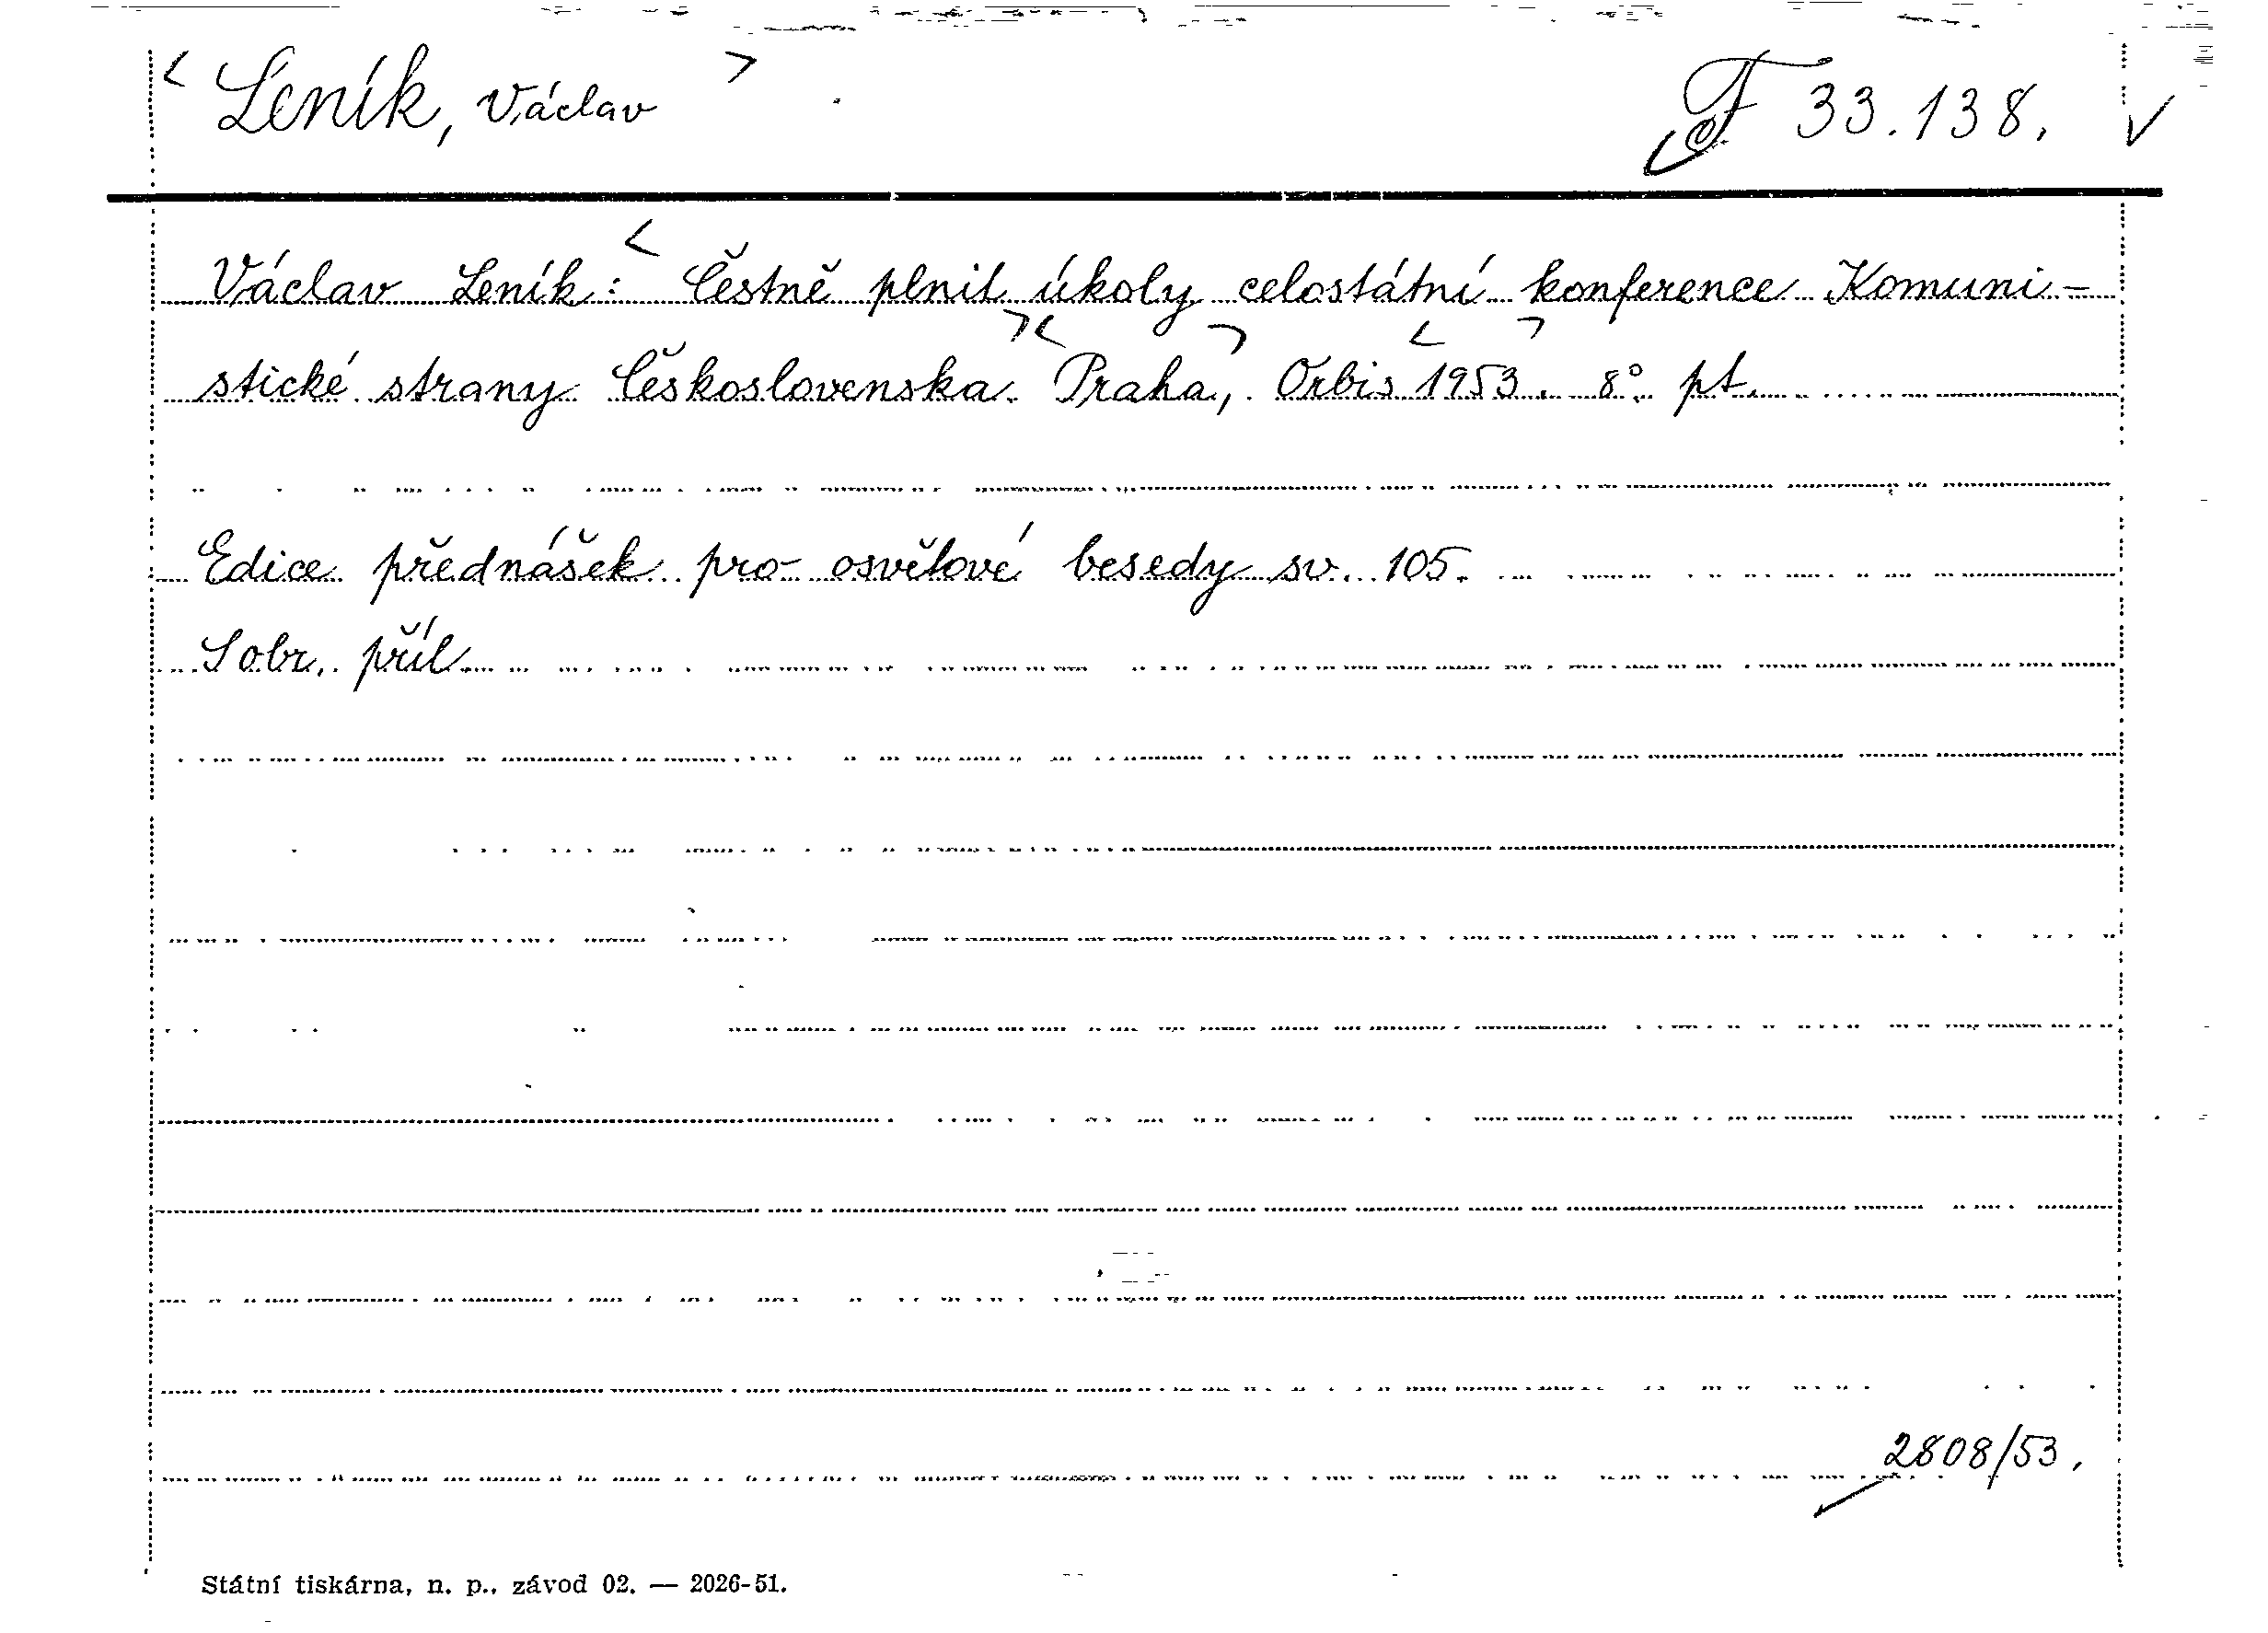 < Leník, Václav >
F 33.138. ✓
Václav Leník: < Čestně plnit úkoly celostátní konference Komuni-
stické strany Československa. >< Praha, > Orbis < 1953. > 8°. pt.
Edice přednášek pro osvětové besedy sv. 105.
S obr. příl.
2808/53.
Státní tiskárna, n. p., závod 02. — 2026-51.